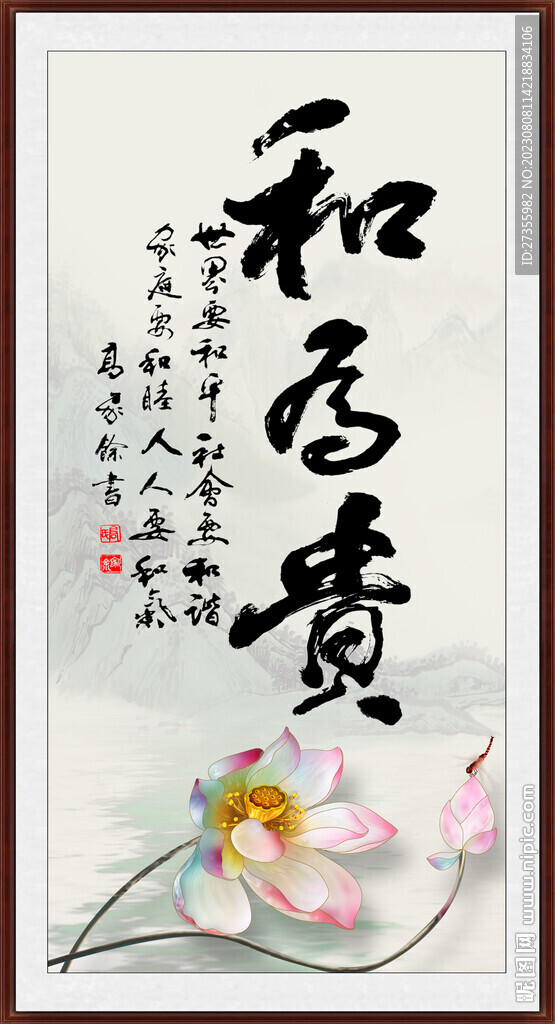 和为貴
世界要和平社會要和諧
家庭要和睦人人要和氣
高家馀書
ID:27355982 NO:20230808114218834106
昵图网 www.nipic.com